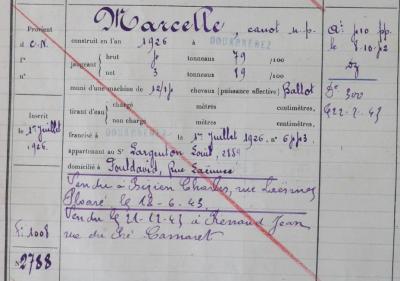 Marcelle, canot m.p.
Provient
d C.N.
f°
n°
construit en l'an 1926 à DOUARNENEZ
jaugeant
brut 7 tonneaux 79 /100
net 3 tonneaux 19 /100
muni d'une machine de 12/ chevaux (puissance effective) Ballot
tirant d'eau
chargé mètres centimètres,
non chargé mètres centimètres,
francisé à le 1er Juillet 1926, n°
appartenant au Sr Largenton Louis, 2889
domicilié à Pouldavid, Rue Laënnec
Vendu à Bozien Charles, rue Laënnec
Ploaré le 12-6-43
Vendu le 21-12-43 à Renaud Jean
rue du Camaret
Inscrit
le 1er Juillet
1926.
1008
2788
le 8.10.2
300
22-7-43